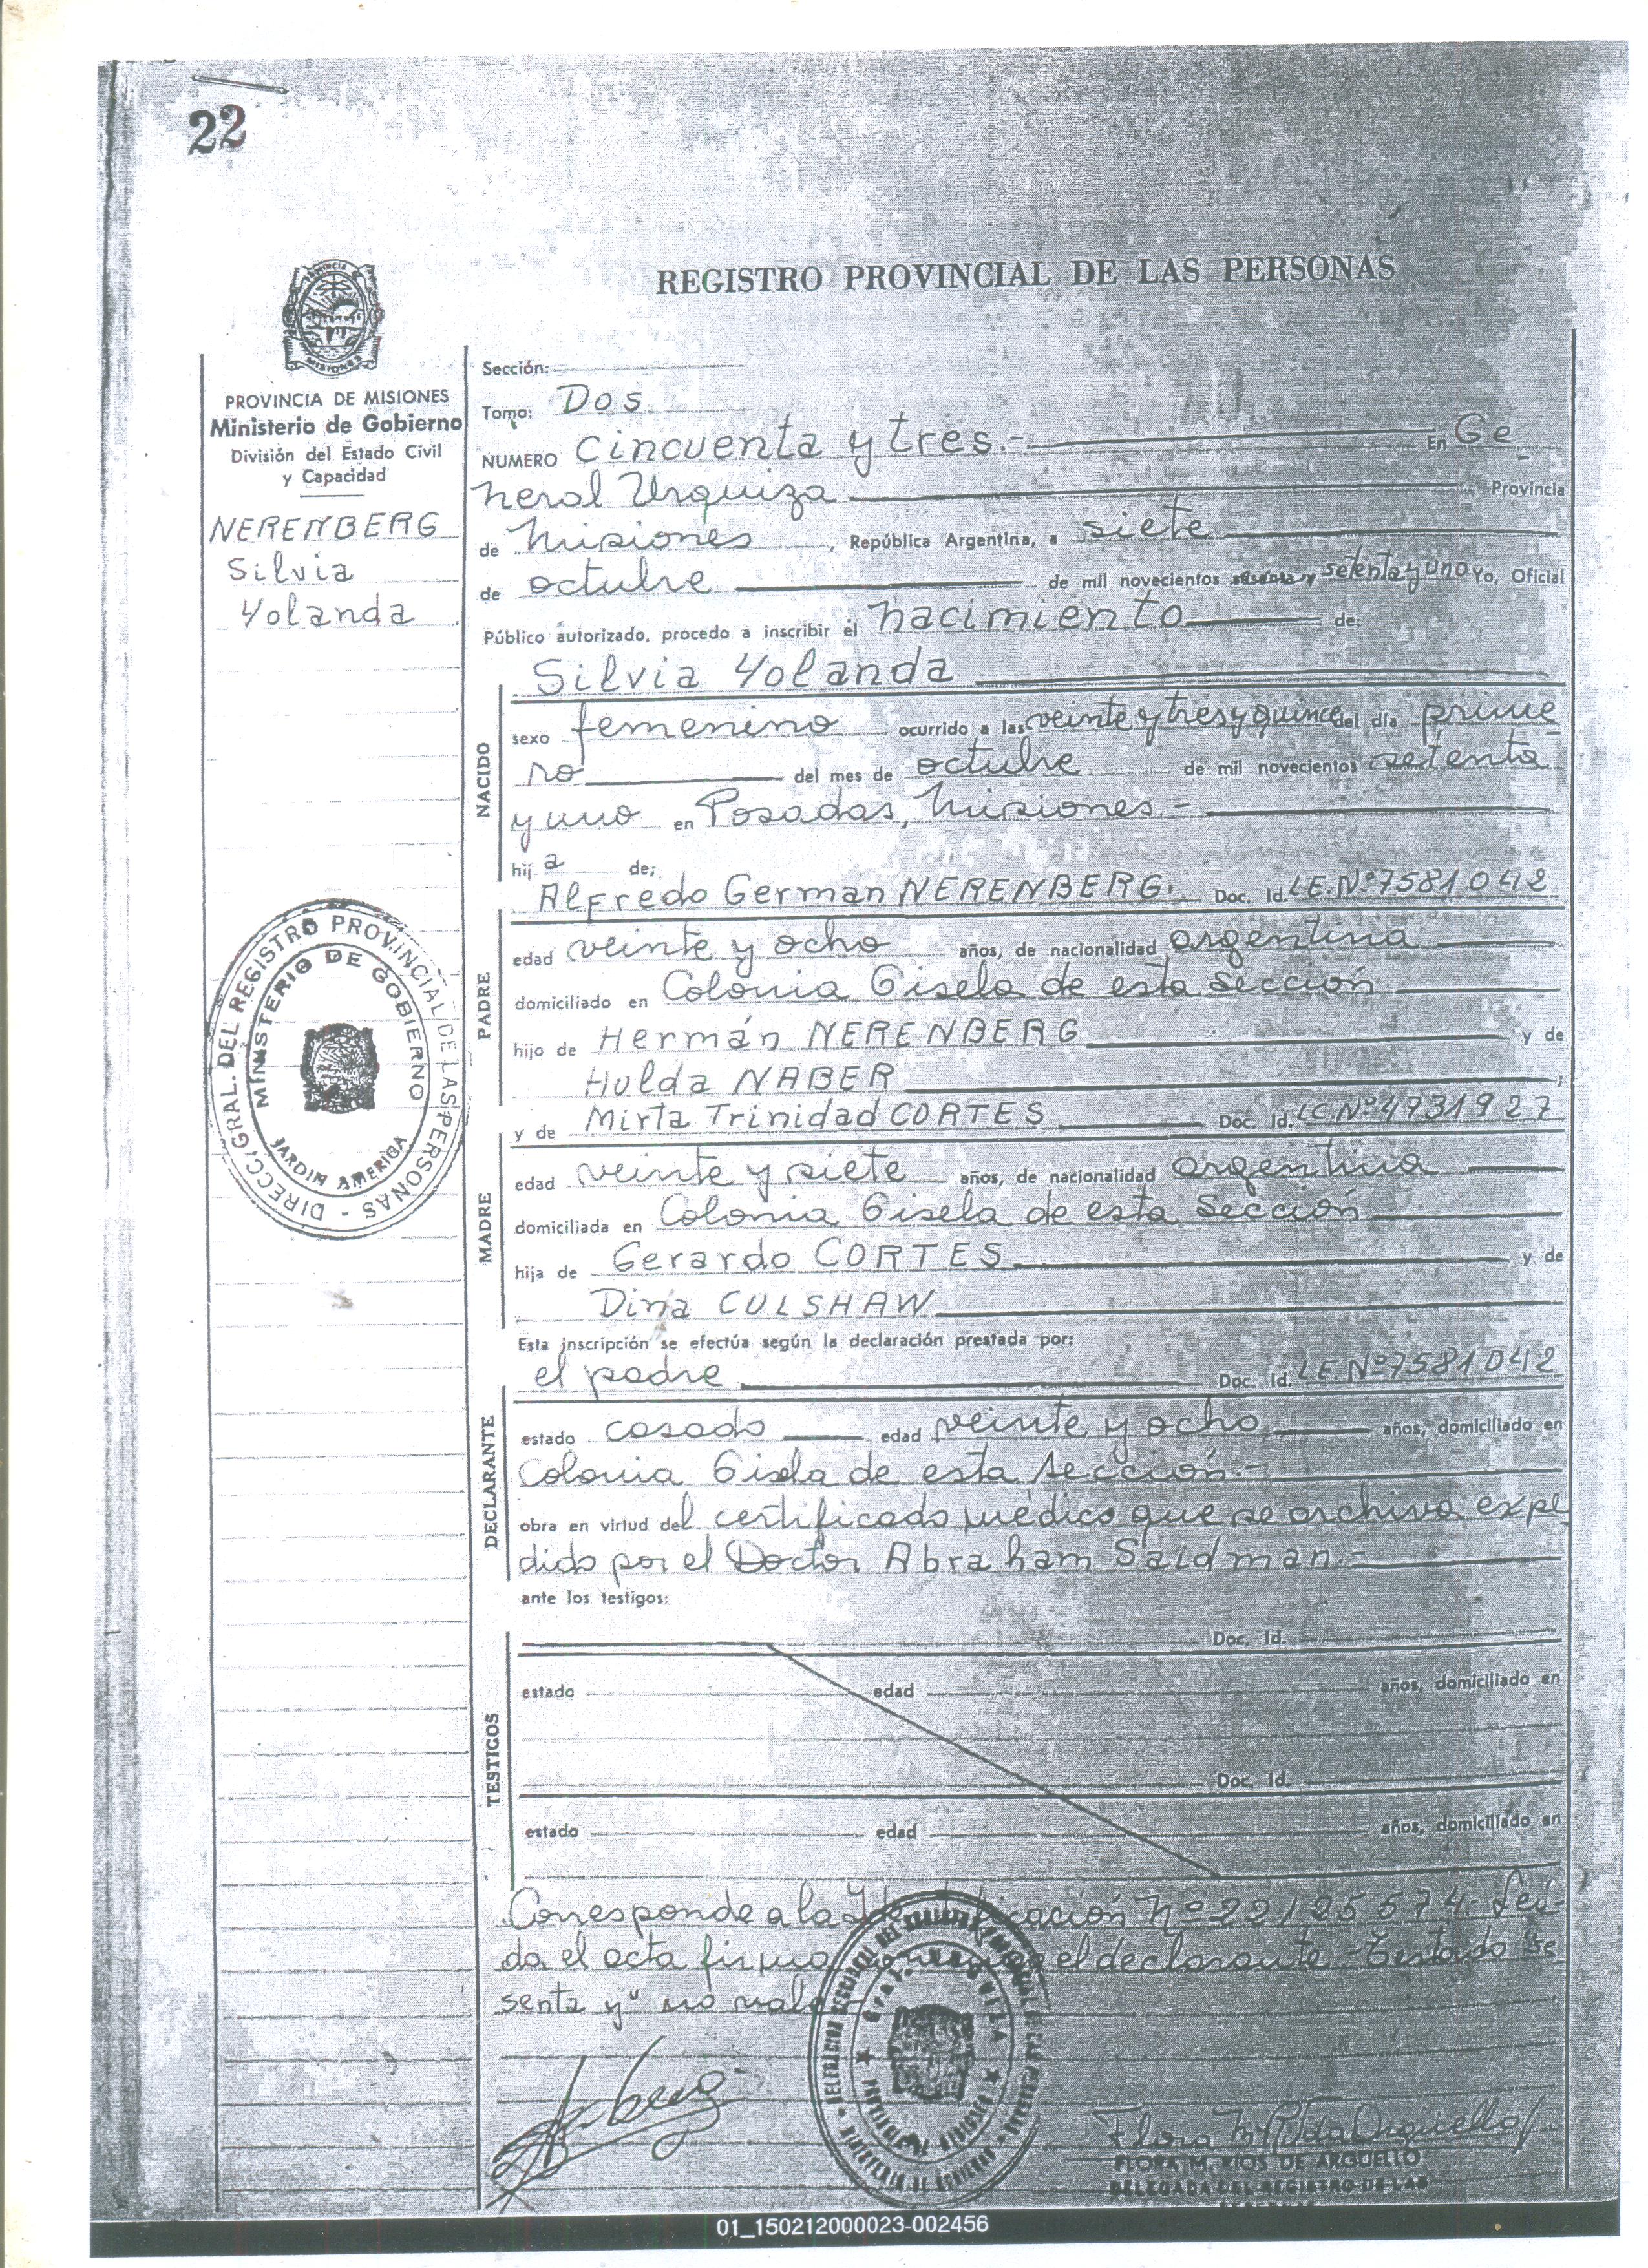 22
REGISTRO PROVINCIAL DE LAS PERSONAS
PROVINCIA DE MISIONES
Ministerio de Gobierno
División del Estado Civil
y Capacidad
NERENBERG
Silvia
Yolanda
Sección:
Tomo: Dos
NUMERO Cincuenta y tres.- En Ge
neral Urquiza Provincia
de Misiones, República Argentina, a siete
de octubre de mil novecientos sesenta y setenta y uno Yo, Oficial
Público autorizado, procedo a inscribir el nacimiento de:
Silvia Yolanda
NACIDO
sexo femenino ocurrido a las veinte y tres y quince del día prime
ro del mes de octubre de mil novecientos setenta
y uno en Posadas, Misiones.-
hija de:
Alfredo German NERENBERG. Doc. Id. L.E. Nº 7581042
PADRE
edad veinte y ocho años, de nacionalidad argentina
domiciliado en Colonia Gisela de esta Sección
hijo de Hermán NERENBERG y de
Hulda NABER ;
y de Mirta Trinidad CORTES Doc. Id. L.C. Nº 4931927
MADRE
edad veinte y siete años, de nacionalidad argentina
domiciliada en Colonia Gisela de esta Sección
hija de Gerardo CORTES y de
Dina CULSHAW
Esta inscripción se efectúa según la declaración prestada por:
el padre Doc. Id. L.E. Nº 7581042
DECLARANTE
estado casado edad veinte y ocho años, domiciliado en
Colonia Gisela de esta sección.-
obra en virtud del certificado médico que se archiva expe
dido por el Doctor Abraham Saidman.-
ante los testigos:
TESTIGOS
Doc. Id.
estado edad años, domiciliado en
Doc. Id.
estado edad años, domiciliado en
Corresponde a la Nº 22125574. Leí-
da el acta firma el declarante. Testado "se
senta y" no vale
DIRECC. GRAL. DEL REGISTRO PROVINCIAL DE LAS PERSONAS -
MINISTERIO DE GOBIERNO
JARDIN AMERICA
PROVINCIA DE
MISIONES
GRAL. URQUIZA
MINISTERIO DE GOBIERNO
FLORA M. RIOS DE ARGUELLO
DELEGADA DEL REGISTRO DE LAS
01_150212000023-002456